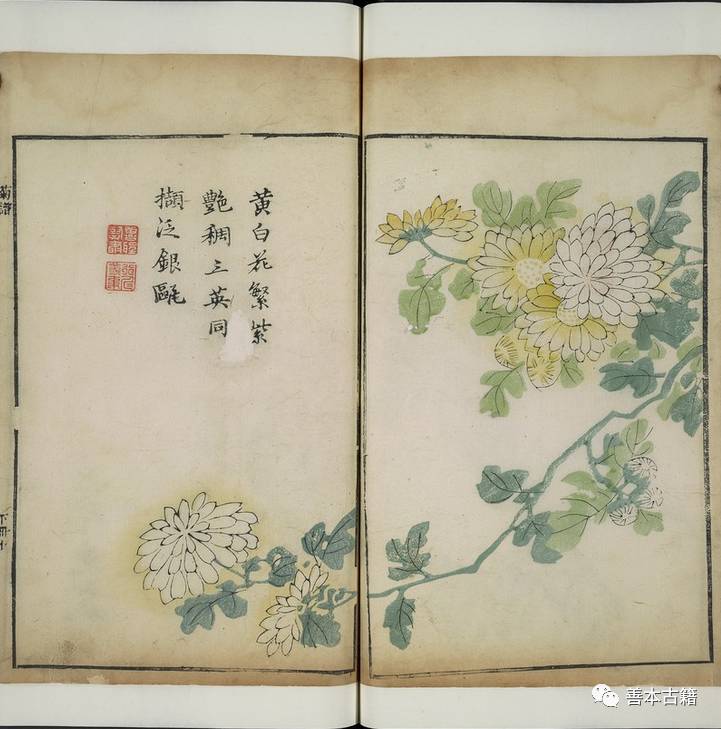 黄白花繁紫
艷稠三英同
擷泛銀甌
菊譜
善本古籍